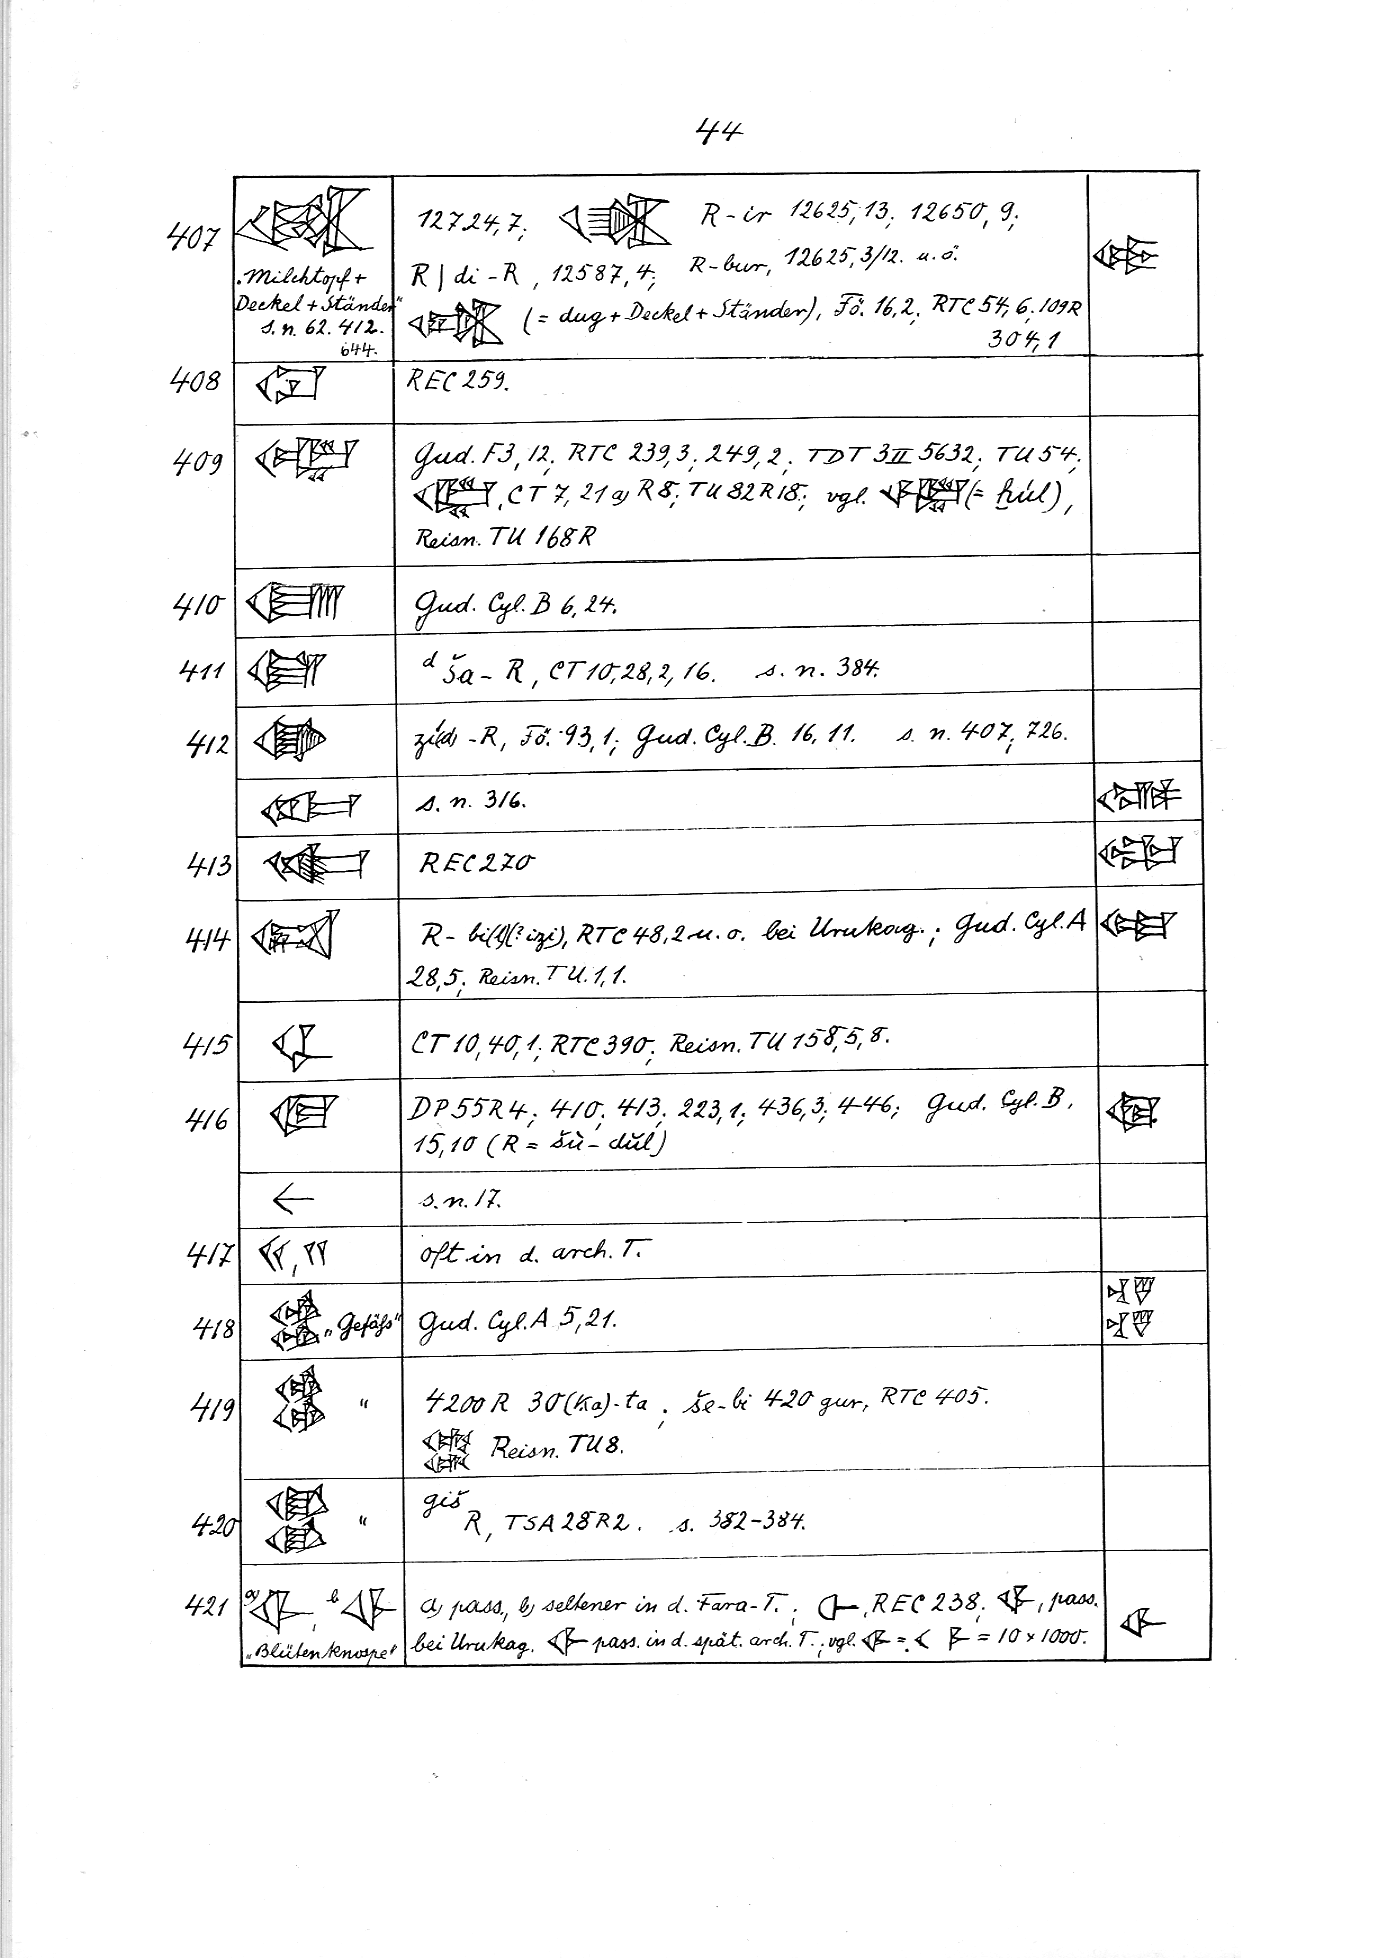 44
407
„Milchtopf +
Deckel + Ständer“
s. n. 62. 412.
644.
12724,7; R-ir 12625,13; 12650,9;
R | di-R, 12587,4; R-bur, 12625,3/12. u. ö.
(= dug + Deckel + Ständer), Fö. 16,2; RTC 54,6; 109R
304,1
408 REC 259.
409 Gud. F3, 12; RTC 239,3; 249,2; TDT 3II 5632; TU 54;
, CT 7, 21a) R8; TU 82R18; vgl. (= ḫúl),
Reisn. TU 168R
410 Gud. Cyl. B 6, 24.
411 d ša-R, CT 10,28,2,16. s. n. 384.
412 zí(d)-R, Fö. 93,1; Gud. Cyl. B. 16,11. s. n. 407, 726.
s. n. 316.
413 REC 270
414 R-bi(l)(?izi), RTC 48,2 u. o. bei Urukag.; Gud. Cyl. A
28,5; Reisn. TU. 1,1.
415 CT 10,40,1; RTC 390; Reisn. TU 158,5,8.
416 DP 55R4; 410; 413; 223,1; 436,3; 446; Gud. Cyl. B,
15,10 (R = šù-dúl)
s. n. 17.
417 oft in d. arch. T.
418 „Gefäß“ Gud. Cyl. A 5,21.
419 “ 4200 R 30 (Ka)-ta; še-bi 420 gur, RTC 405.
Reisn. TU 8.
420 “ giš R, TSA 28R2. s. 382-384.
421 a) , b)
„Blütenknospe“
a) pass., b) seltener in d. Fara-T.; , REC 238; , pass.
bei Urukag. pass. in d. spät. arch. T.; vgl. = = 10 × 1000.